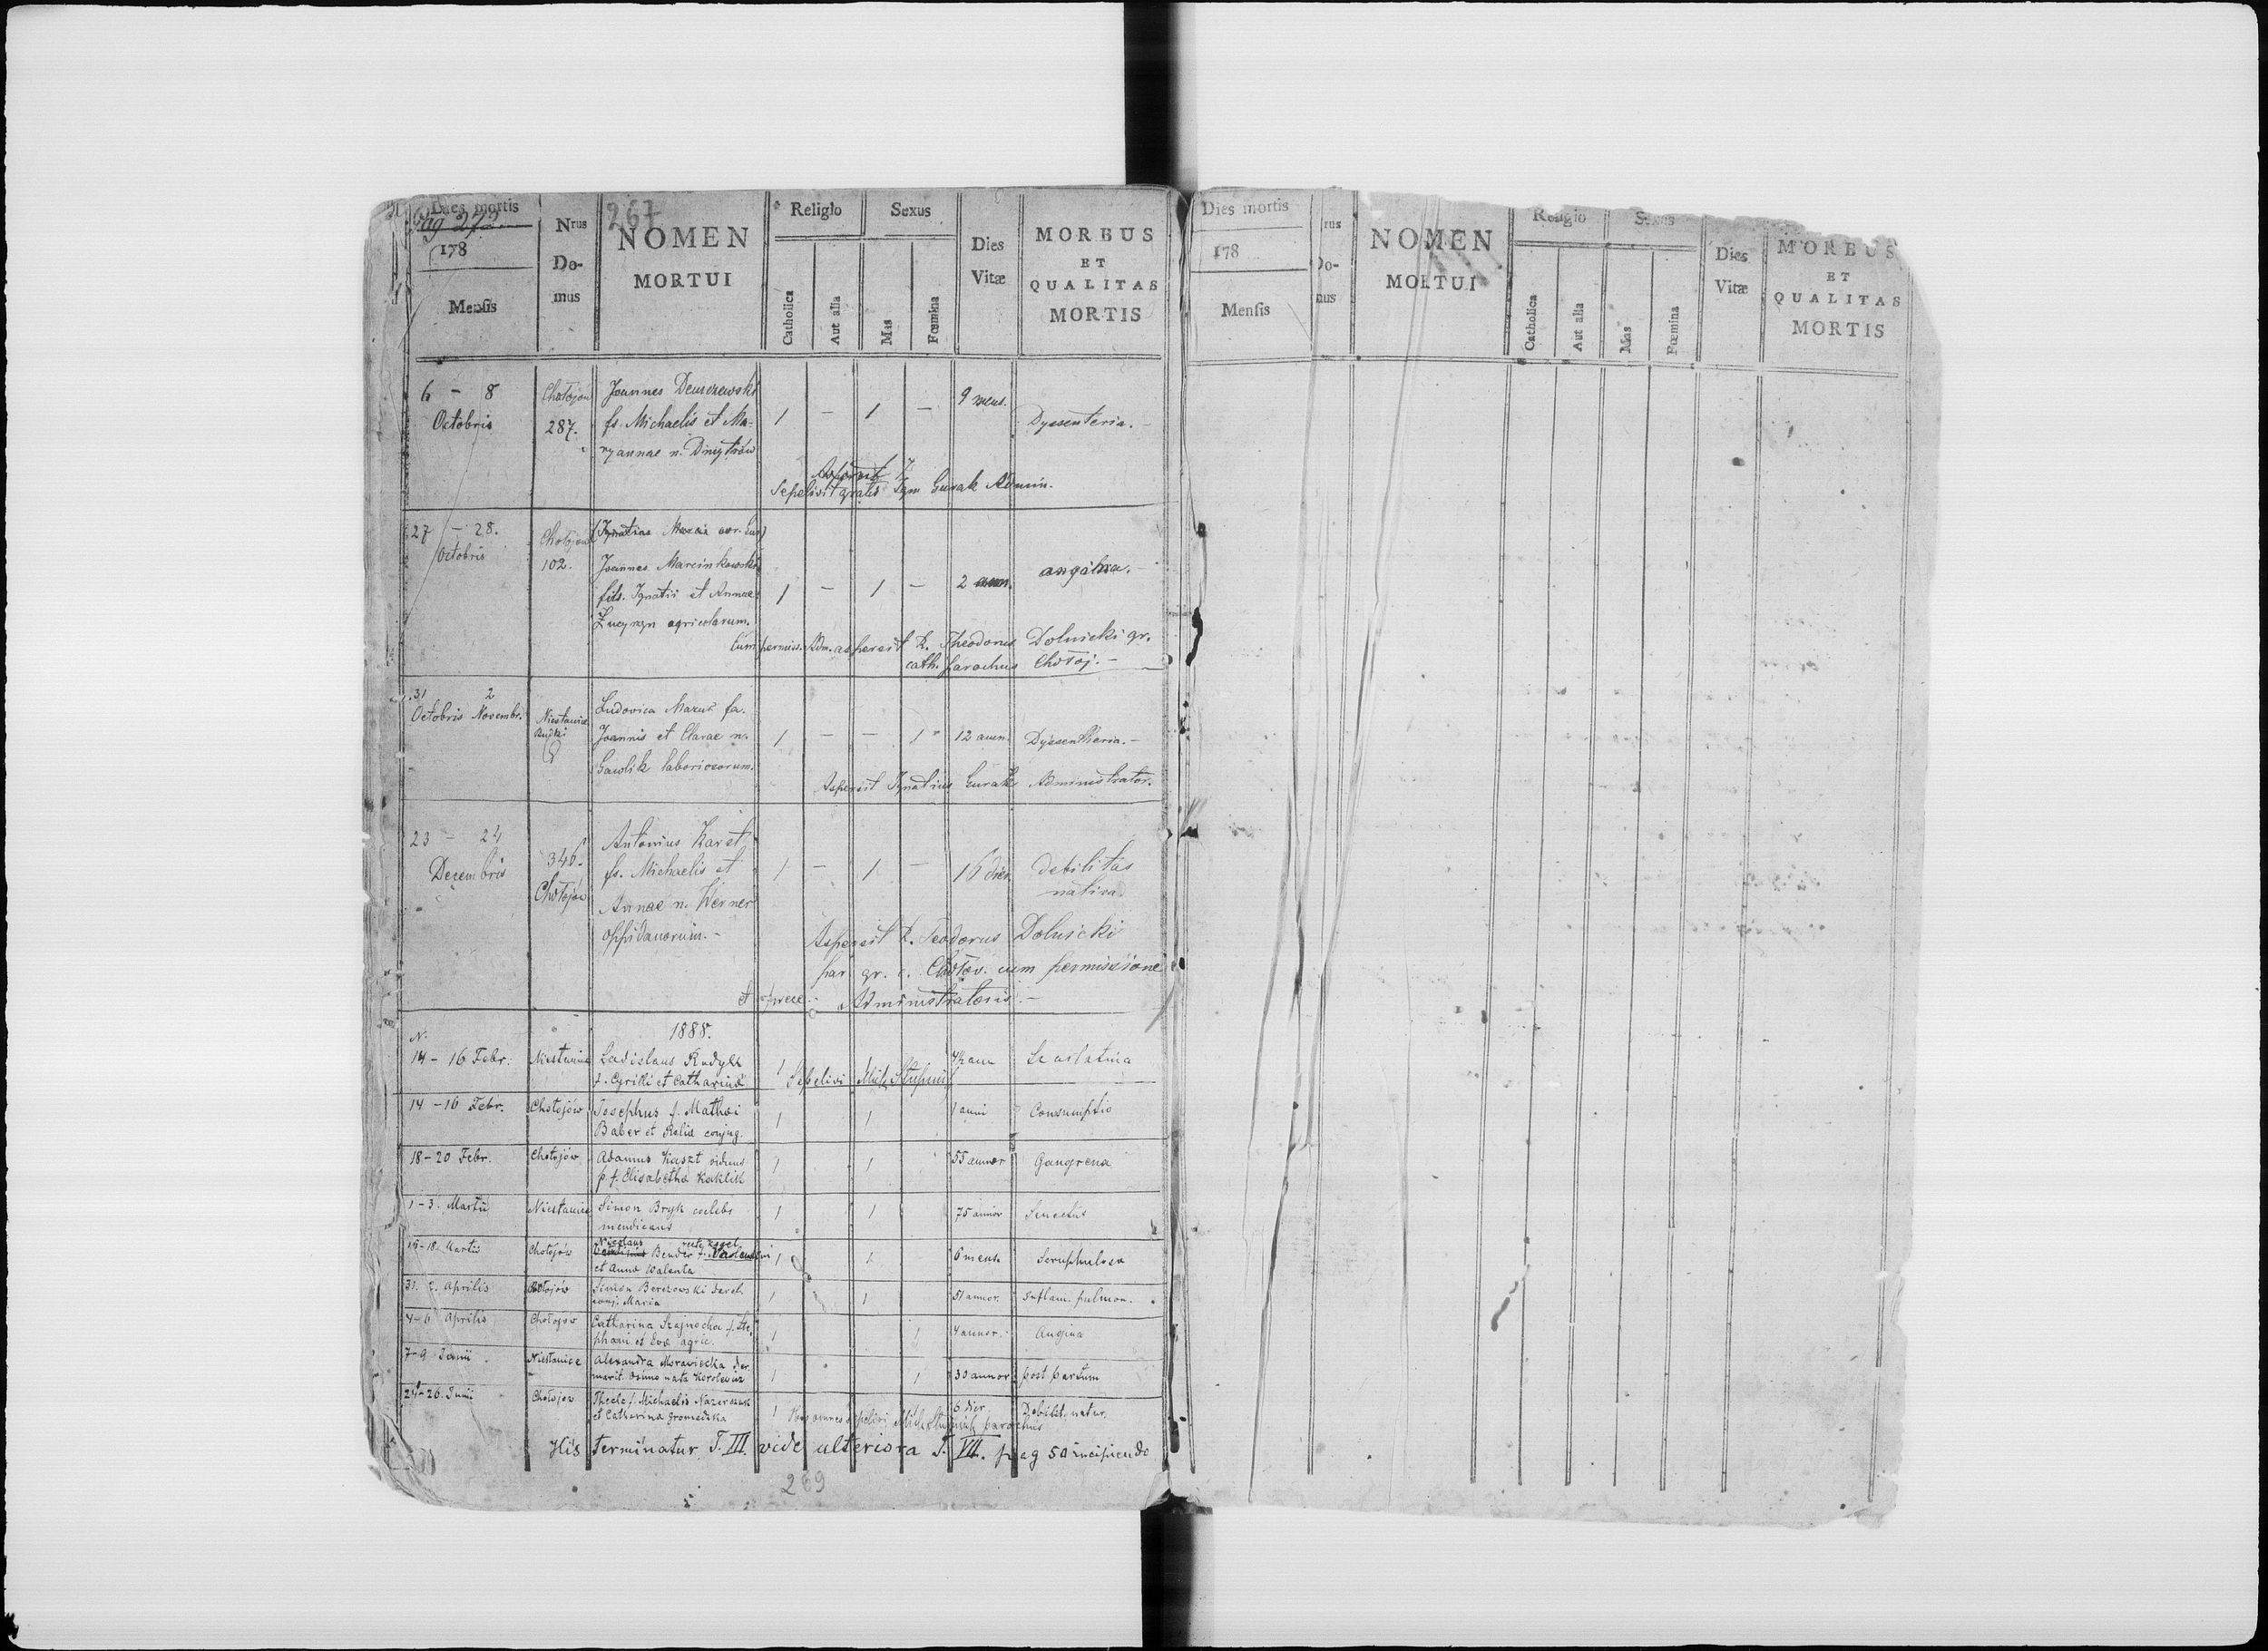 Dies mortis
Pag 272
178
Mensis
Nrus
Do-
mus
267
NOMEN
MORTUI
Religio
Catholica
Aut alia
Sexus
Mas
Fœmina
Dies
Vitæ
MORBUS
ET
QUALITAS
MORTIS
6 – 8
Octobris
Chołojów
287.
Joannes
fs. Michaelis et Ma-
ryannae n. Dmytrów
1 – 1 –
9 mens.
Dyssenteria. –
Sepelivit gratis Ign Gurak Admin.
27 – 28.
Octobris
Chołojów
102.
Joannes Marcinkowski
fils. Ignatii et Annae
agricolarum.
1 – 1 –
2 ann.
angina. –
Cum permiss. Adm. aspersit R. Theodorus Dolnicki gr.
cath. parochus Chołoj. –
31 2
Octobris Novembr.
Niestanice
Ludovica Mazur fa.
Joannis et Clarae n.
Gawlik laboriosorum.
1 – – 1
12 ann.
Dyssentheria. –
Aspersit Ignatius Gurak Administrator.
23 – 24
Decembris
346.
Chołojów
Antonius Karet
fs. Michaelis et
Annae n. Werner
oppidanorum. –
1 – 1 –
16 dies
debilitas
nativa.
Aspersit R. Teodorus Dolnicki
par. gr. c. Chołov. cum permissione
et Administratoris. –
N.
1888.
14 – 16 Febr.
Niestanice
Ladislaus Rudyk
f. Cyrilli et Catharinæ
1
4½ ann
Scarlatina
Sepelivi Mich
14 – 16 Febr.
Chołojów
Josephus f. Mathæi
Baber et Ralia conjug.
1 1
1 anni
Consumptio
18 – 20 Febr.
Chołojów
Adamus Kaszt viduus
p. f. Elisabetha Kaklik
1 1
55 annor
Gangrena
1 – 3. Martii
Niestanice
Simon Bryk coelebs
mendicans
1 1
75 annor
Senectus
15 – 18. Martis
Chołojów
Nicolaus
Bender f. Valentini
et Anna Walenta
1 1
6 mens.
Scruphulosa
31. 2. Aprilis
Chołojów
Simon Berezowski
conj. Maria
1 1
51 annor.
Inflam. pulmon.
4 – 6 Aprilis
Chołojow
Catharina Szajnocha f. Ste-
phani et Evæ agric.
1 1
4 annor.
Angina
7 – 9 Junii
Niestanice
Alexandra Morawiecka
marit. nata Korolewicz
1 1
30 annor
post partum
24 – 26. Junii
Chołojow
Thecle f. Michaelis
et Catharina Gromedzka
1
6 dier.
Debilit. natur.
Hos omnes sepelivi Mich. parochus
His terminatur T. III. vide ulteriora T. VII. pag 50 incipiendo
269
Dies mortis
178
Mensis
rus
Do-
mus
NOMEN
MORTUI
Religio
Catholica
Aut alia
Sexus
Mas
Fœmina
Dies
Vitæ
MORBUS
ET
QUALITAS
MORTIS